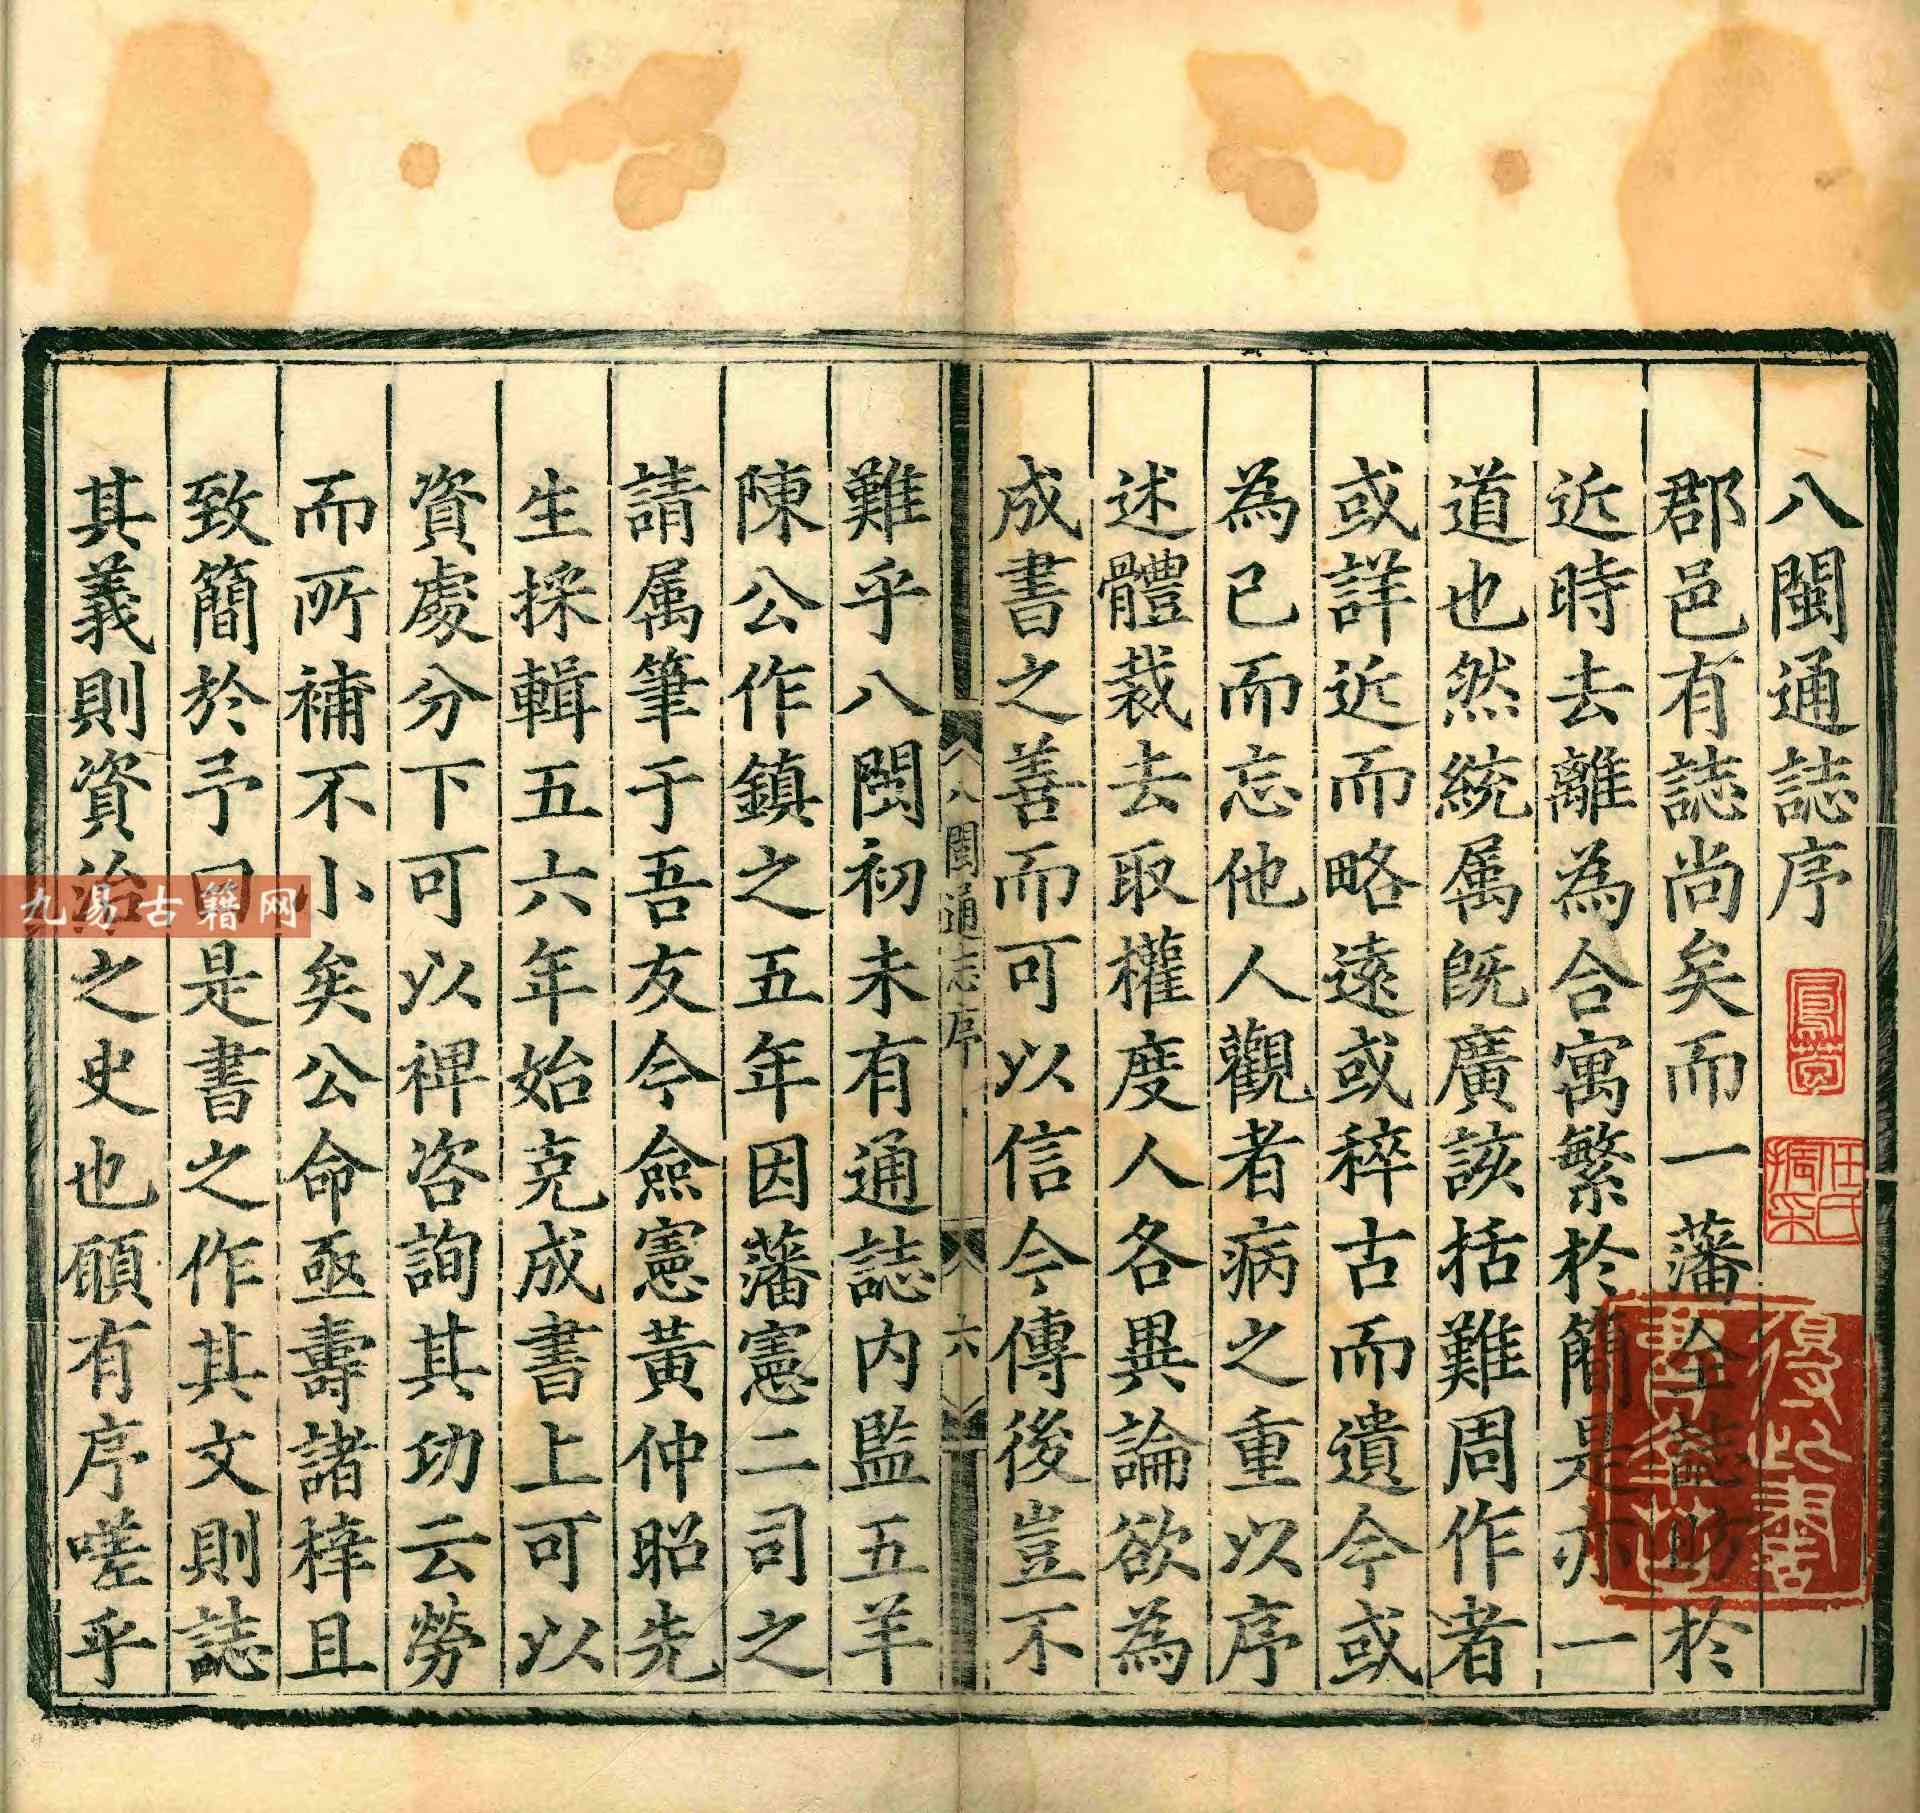 八閩通誌序
郡邑有誌尚矣而一藩全誌昉於
近時去離為合寓繁於簡是亦一
道也然統属既廣該括難周作者
或詳近而略遠或稡古而遺今或
為已而忘他人觀者病之重以序
述體裁去取權度人各異論欲為
成書之善而可以信今傳後豈不
八閩通志序
六
難乎八閩初未有通誌内監五羊
陳公作鎮之五年因藩憲二司之
請属筆于吾友今僉憲黃仲昭先
生採輯五六年始克成書上可以
資處分下可以裨咨詢其功云勞
而所補不小矣公命亟壽諸梓且
致簡於予曰是書之作其文則誌
其義則資治之史也頋有序嗟乎
任氏振采
九易古籍网